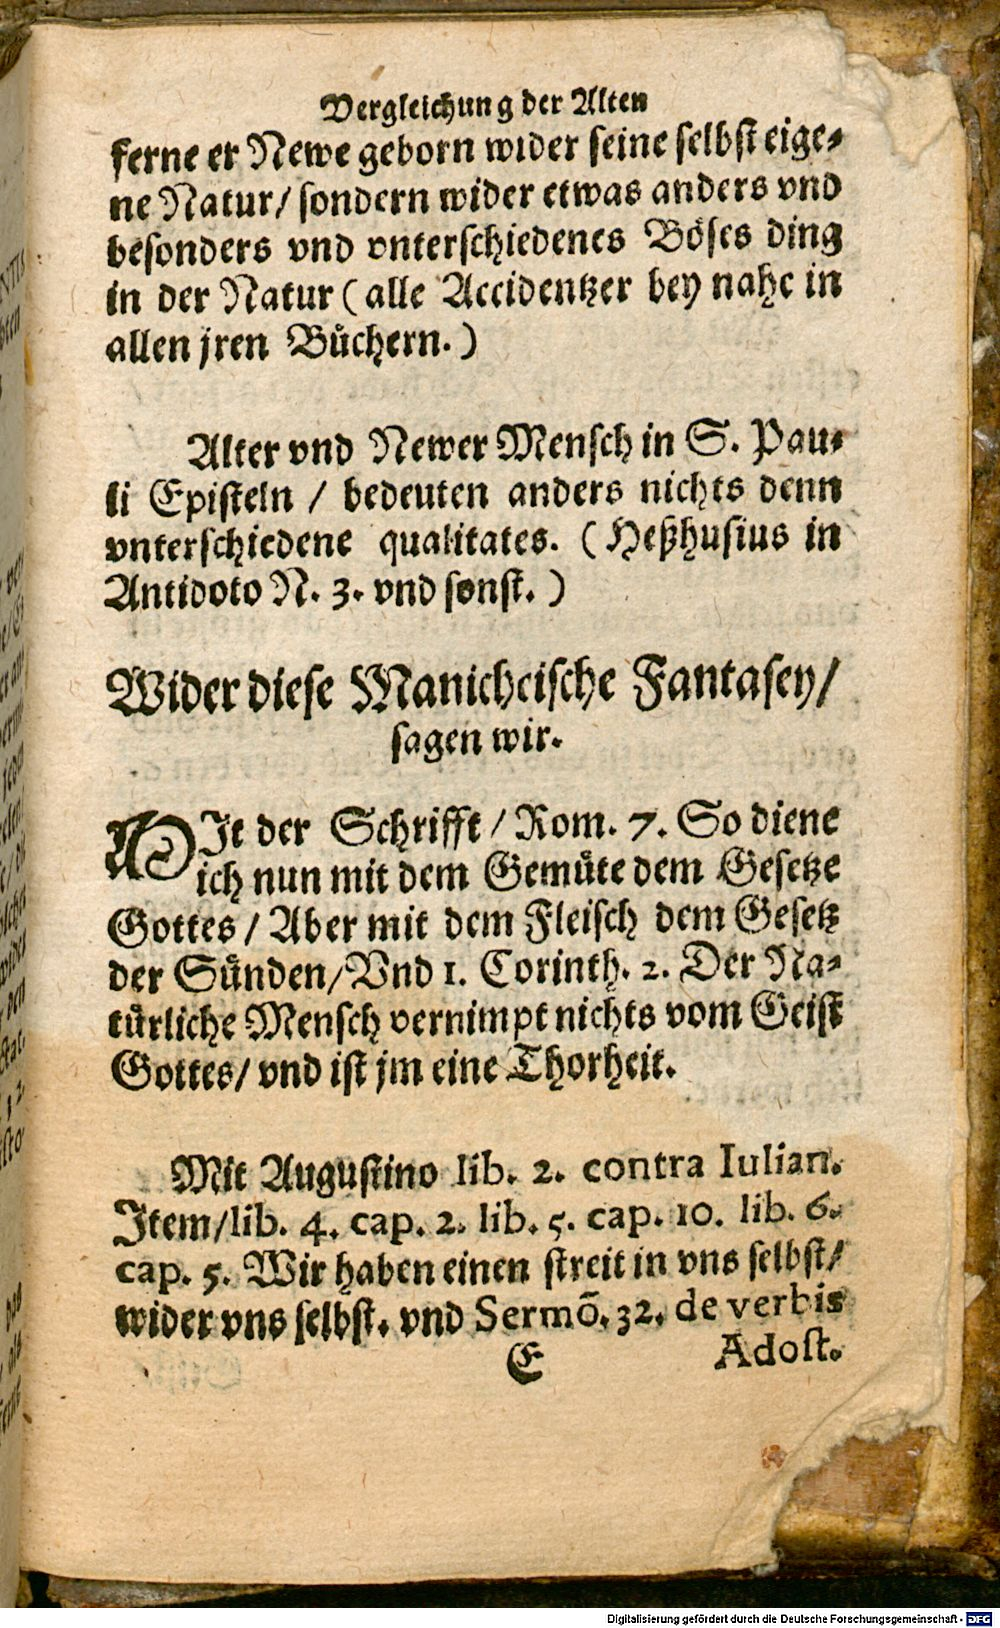 Vergleichung der Alten
ferne er Newe geborn wider seine selbst eige-
ne Natur/ sondern wider etwas anders vnd
besonders vnd vnterschiedenes Böses ding
in der Natur (alle Accidentzer bey nahe in
allen jren Büchern.)
Alter vnd Newer Mensch in S. Pau-
li Episteln / bedeuten anders nichts denn
vnterschiedene qualitates. (Heßhusius in
Antidoto N. 3. vnd sonst.)
Wider diese Manicheische Fantasey/
sagen wir.
MIt der Schrifft / Rom. 7. So diene
ich nun mit dem Gemüte dem Gesetze
Gottes / Aber mit dem Fleisch dem Gesetz
der Sünden/Vnd 1. Corinth. 2. Der Na-
türliche Mensch vernimpt nichts vom Geist
Gottes/ vnd ist jm eine Thorheit.
Mit Augustino lib. 2. contra Iulian.
Item/lib. 4. cap. 2. lib. 5. cap. 10. lib. 6.
cap. 5. Wir haben einen streit in vns selbst/
wider vns selbst. vnd Sermõ. 32. de verbis
E Adost.
Digitalisierung gefördert durch die Deutsche Forschungsgemeinschaft - DFG